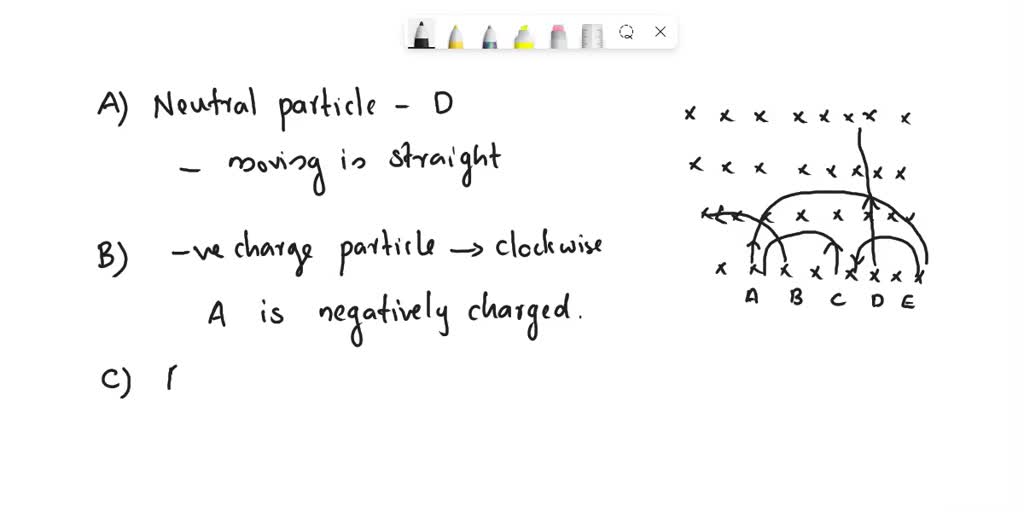 A) Neutral particle - D
- moving is straight
B) -ve charge particle → clockwise
A is negatively charged.
C)
x x x x x x x x
x x x x x x x x
x x x x x x x x
x x x x x x x x
A B C D E